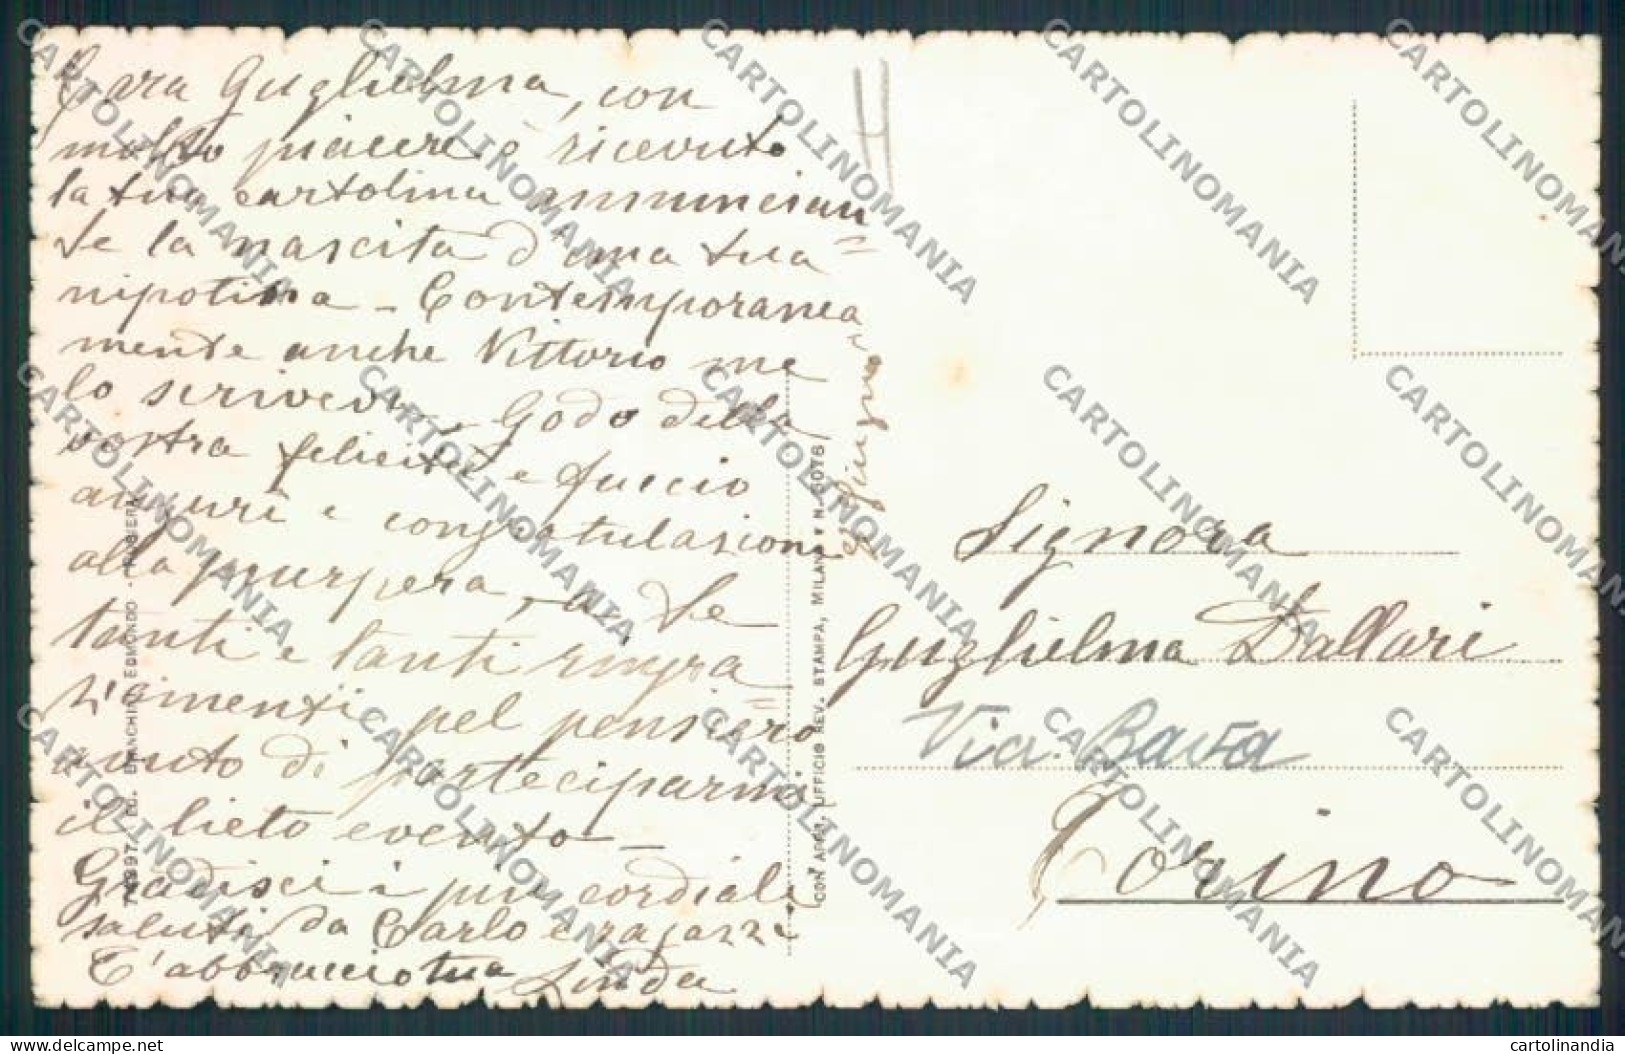 Cara Guglielma, con
molto piacere è ricevuto
la tua cartolina annuncian
te la nascita d'una tua =
nipotina - Contemporanea
mente anche Vittorio me =
lo scriveva - Godo della
vostra felicità e faccio
auguri e congratulazioni
alla puerpera, a te
tanti e tanti ringra
ziamenti pel pensiero =
avuto di parteciparmi
il lieto evento -
Gradisci i più cordiali
saluti da Carlo e ragazzi
T'abbraccio tua Linda
Giugno
H
ED. BIANCHINI EDMONDO
CON APP. UFFICIO REV. STAMPA, MILANO
Signora
Guglielma Dallari
Via Bava
Torino
CARTOLINOMANIA
cartolinandia
delcampe.net